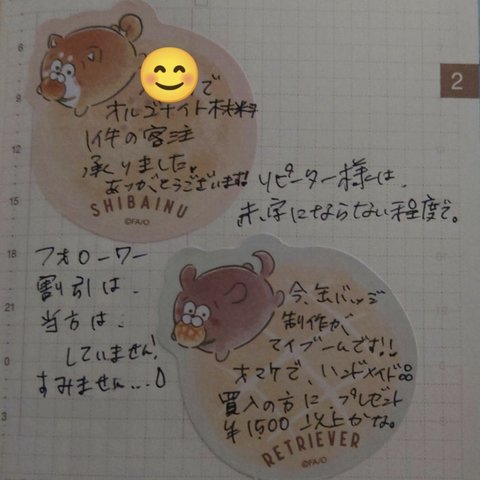 で
オルゴナイト材料
1件の客注
承りました。
ありがとうございます!
SHIBAINU
©FAJO
リピーター様は、
赤字にならない程度で。
フォローワー
割引は、
当方は、
していません!
すみません…
今、缶バッジ
制作が
マイブームです!!
オマケで、ハンドメイド品
買入の方に、プレゼント
¥1500以上かな。
RETRIEVER
©FAJO
2
6
9
12
15
18
21
0
3